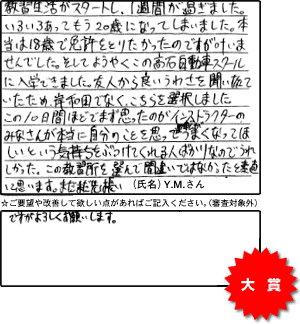 教習生活がスタートし、1週間が過ぎました。
いろいろあってもう20歳になってしまいました。本
当は18歳で免許をとりたかったのですが叶いま
せんでした。そしてようやくこの高石自動車スクール
に入学できました。友人から良いうわさを聞い
ていたため、岸和田でなく、こちらを選択しました
この10日間ほどでまず思ったのがインストラクターの
みなさんが本当に自分のことを思ってうまくなってほ
しいという気持ちをぶつけてくれる人ばかりなのでうれ
しかった。この教習所を選んで間違いではなかったと素直
に思います。まだ (氏名) Y.M.さん
☆ご要望や改善して欲しい点があればご記入ください。(審査対象外)
ですがよろしくお願いします。
大賞